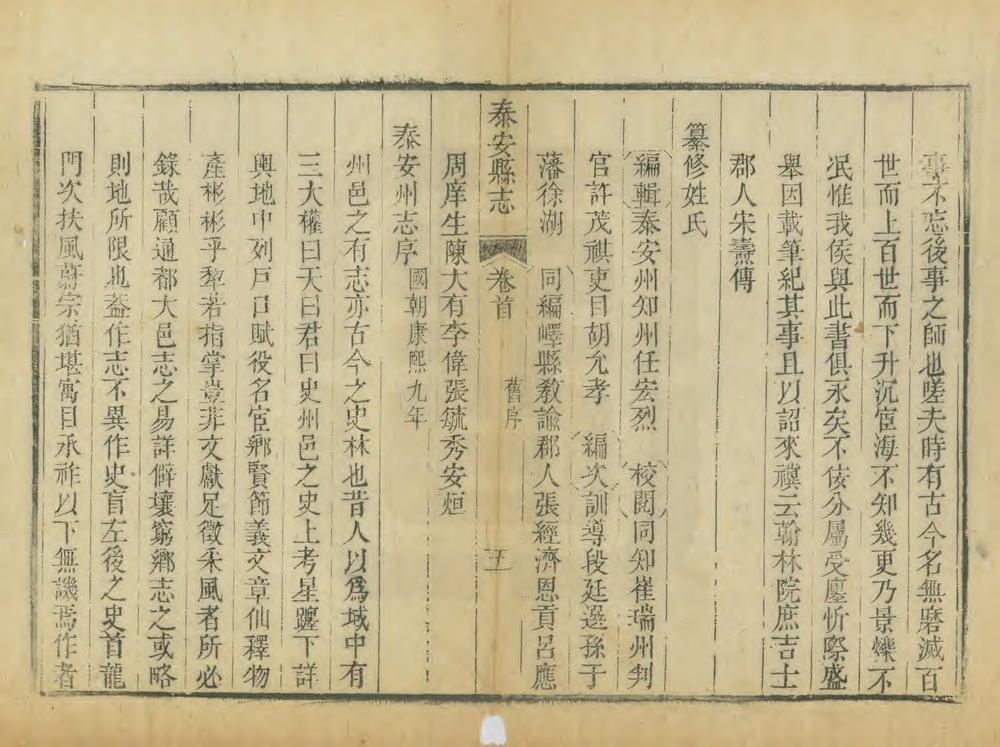 事不忘後事之師也嗟夫時有古今名無磨滅百
世而上百世而下升沉宦海不知幾更乃景爍不
冺惟我侯與此書俱永矣不佞分屬受廛忻際盛
舉因載筆紀其事且以詔來禩云翰林院庶吉士
郡人宋燾傳
纂修姓氏
編輯泰安州知州任宏烈 校閱同知崔瑞州判
官許茂祺吏目胡允孝 編次訓導段廷選孫于
藩徐湖 同編嶧縣敎諭郡人張經濟恩貢呂應
周庠生陳大有李偉張毓秀安烜
泰安縣志 卷首 舊序 五
泰安州志序 國朝康熙九年
州邑之有志亦古今之史林也昔人以爲域中有
三大權曰天曰君曰史州邑之史上考星躔下詳
輿地中列戶口賦役名宦鄉賢節義文章仙釋物
產彬彬乎犂若指掌豈非文獻足徵采風者所必
錄哉顧通都大邑志之易詳僻壤窮鄉志之或略
則地所限也葢作志不異作史盲左後之史首龍
門次扶風蔚宗猶堪寓目承祚以下無譏焉作者